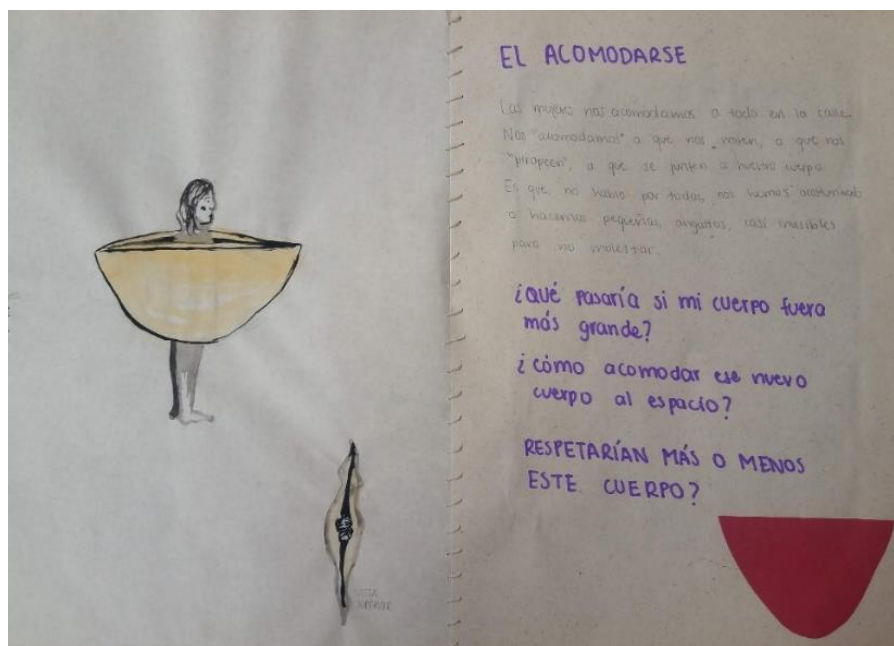 VISTA
SUPERIOR
EL ACOMODARSE
Las mujeres nos acomodamos a todo en la calle.
Nos "acomodamos" a que nos miren, a que nos
"piropeen", a que se junten a nuestro cuerpo
Es que, no hablo por todas, nos hemos acostumbrado
a hacernos pequeñas, angostas, casi invisibles
para no molestar.
¿QUÉ PASARÍA SI MI CUERPO FUERA
MÁS GRANDE?
¿CÓMO ACOMODAR ESE NUEVO
CUERPO AL ESPACIO?
RESPETARÍAN MÁS O MENOS
ESTE CUERPO?